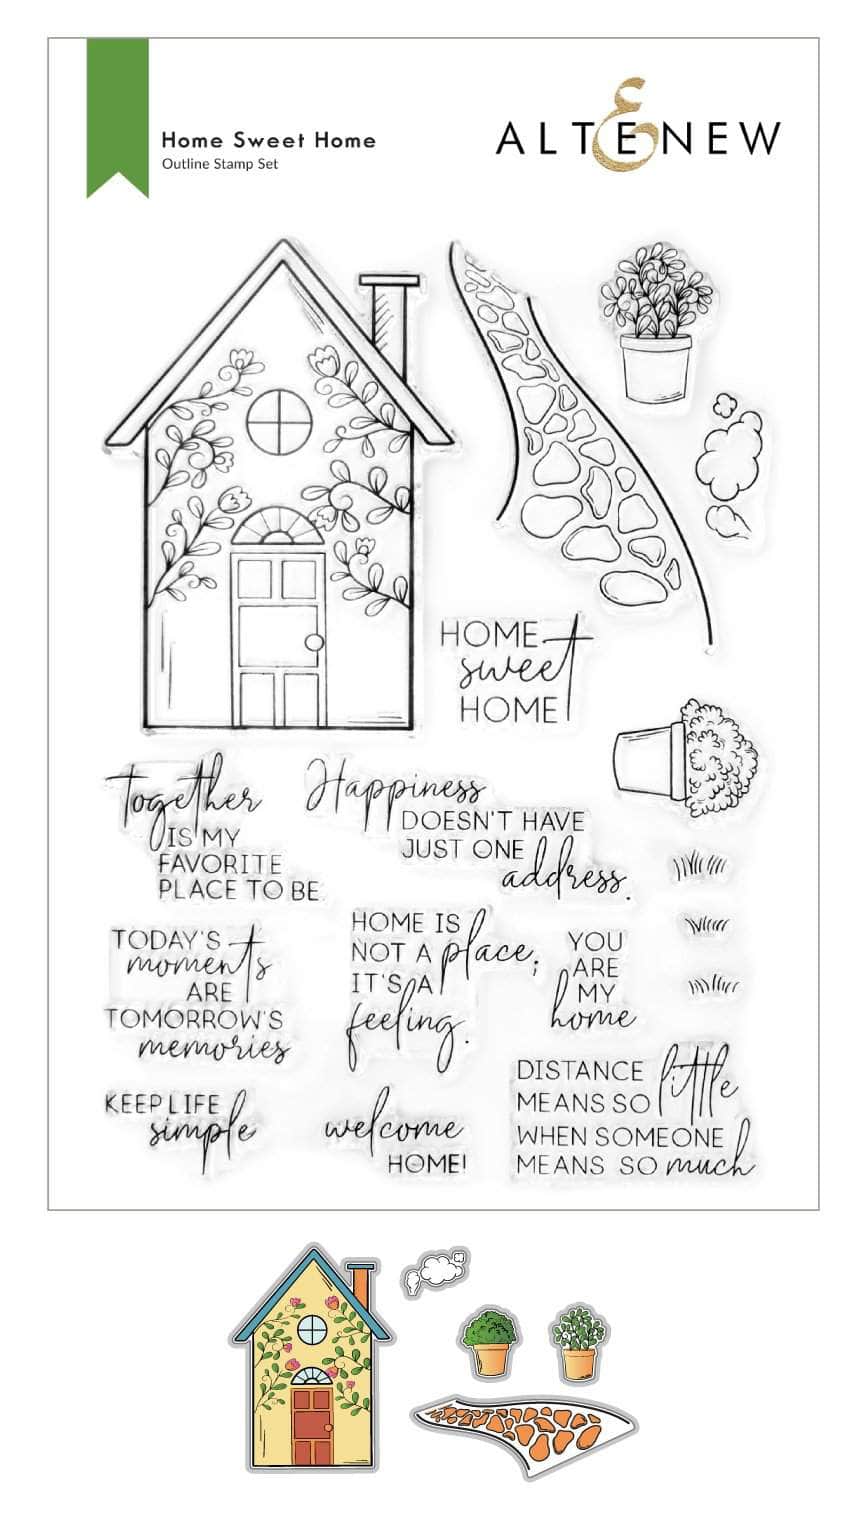 Home Sweet Home
Outline Stamp Set
ALTENEW
HOME
sweet
HOME
together
IS MY
FAVORITE
PLACE TO BE.
Happiness
DOESN'T HAVE
JUST ONE
address.
TODAY'S
moments
ARE
TOMORROW'S
memories
HOME IS
NOT A place;
IT'S A
feeling.
YOU
ARE
MY
home
KEEP LIFE
simple
welcome
HOME!
DISTANCE
MEANS SO little
WHEN SOMEONE
MEANS SO much